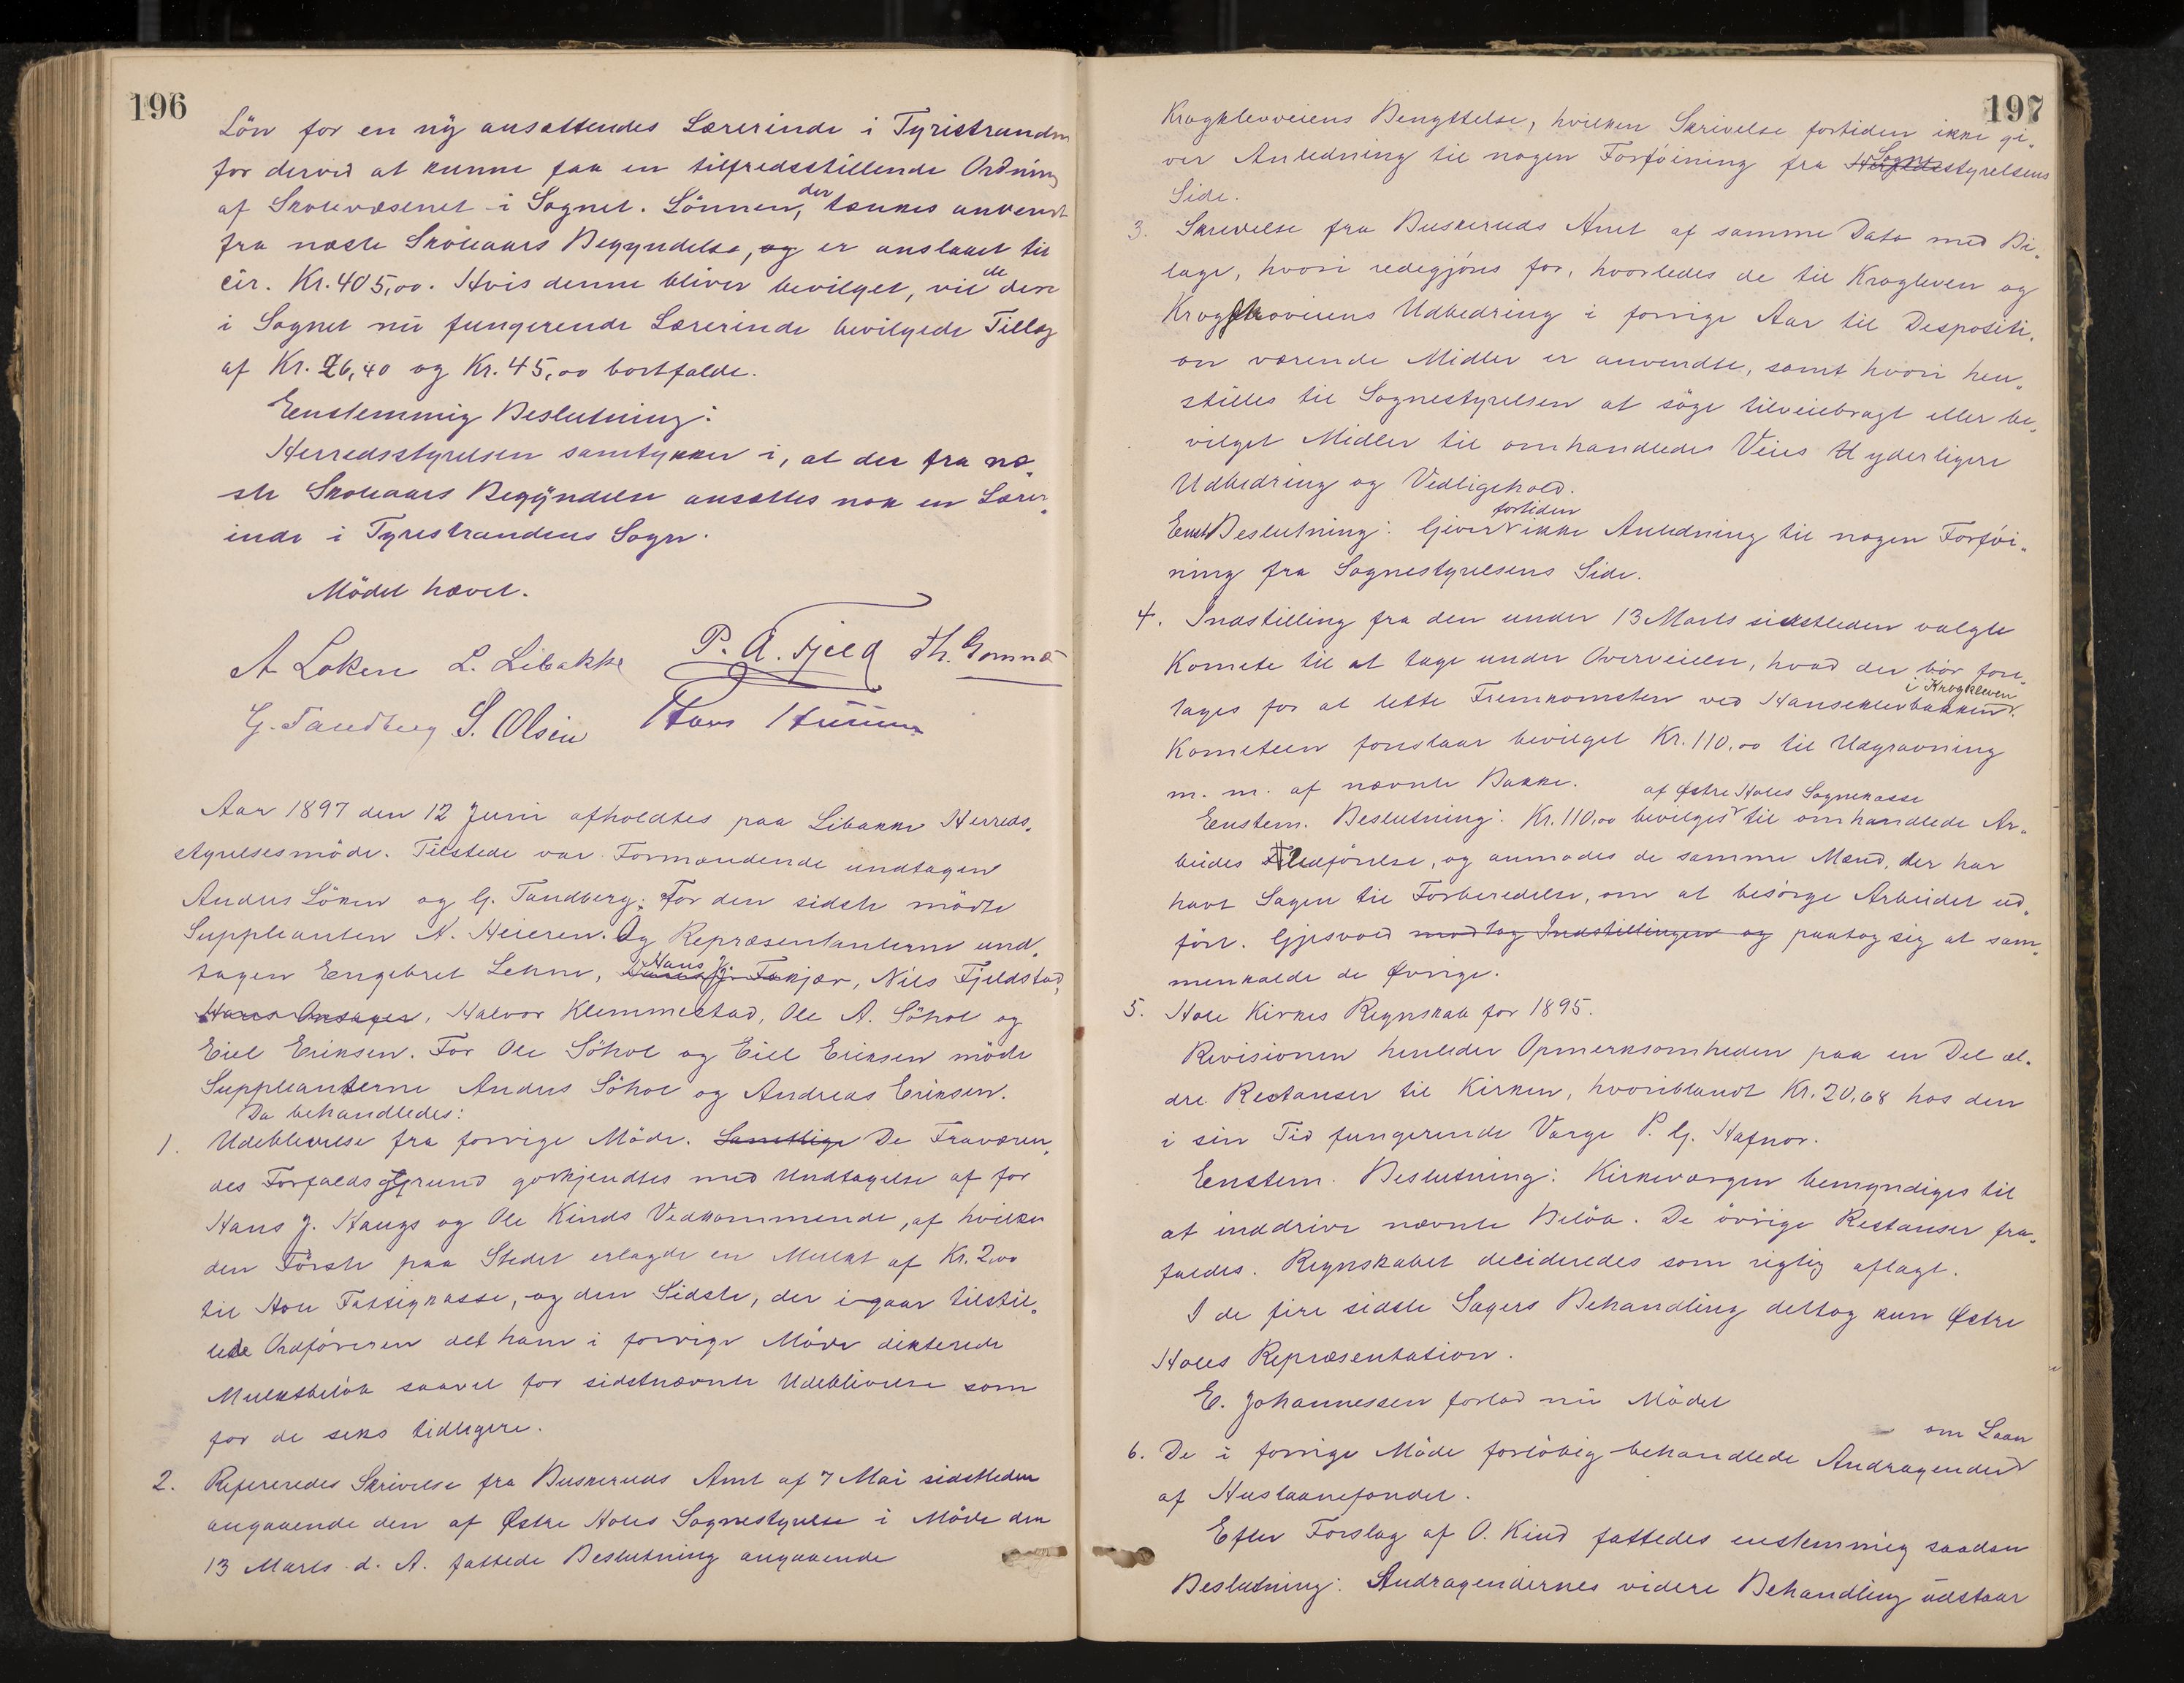 196
Lön for en ny ansættendes Lærerinde i Tyristranden
for derved at kunne faa en tilfredsstillende Ordning
af Skolevæsenet i Sognet. Lönnen, der tænkes anvendt
fra næste Skoleaars Begyndelse, og er anslaaet til
cir. Kr. 405,00. Hvis denne bliver bevilget, vil de den
i Sognet nu fungerende Lærerinde bevilgede Tillæg
af Kr. 26,40 og Kr. 45,00 bortfalde.
Enstemmig Beslutning:
Herredsstyrelsen samtykker i, at der fra næ„
ste Skoleaars Begyndelse ansættes nok en Lærer„
inde i Tyristrandens Sogn.
Mödet hævet.
A Løken L. Libakke P. A. Fjeld Th. Gomnæs
G. Tandberg S. Olsen Hans Hurum
Aar 1897 den 12 Juni afholdtes paa Libakke Herreds„
styrelsesmöde. Tilstede var Formændende undtagen
Anders Löken og G. Tandberg. For den sidste mödte
Suppleanten N. Heieren. Og Repræsentanterne und„
tagen Engebret Lehne, Hans kjær, Nils Fjeldstad,
Hans Onsager, Halvor Klemmetstad, Ole A. Söhol og
Eiel Eriksen. For Ole Söhol og Eiel Eriksen mödte
Suppleanterne Anders Söhol og Andreas Eriksen.
Da behandledes:
1. Udeblevelse fra forrige Möde. Samtlige De Fraværen„
des Forfaldsgrund godkjendtes med Undtagelse af for
Hans J. Haugs og Ole Kinds Vedkommende, af hvilke
den Förste paa Stedet erlagde en Mulkt af Kr. 2,00
til Hole Fattigkasse, og den Sidste, der igaar tilstil„
lede Ordföreren det ham i forrige Möde dikterede
Mulktbelöb saavel for sidstnævnte Udeblivelse som
for de seks tidligere.
2. Refereredes Skrivelse fra Buskeruds Amt af 7 Mai sidstleden
angaaende den af Østre Holes Sognestyrelse i Möde den
13 Marts d. A. fattede Beslutning angaaende
197
Krogkleveiens Benyttelse, hvilken Skrivelse fortiden ikke gi„
ver Anledning til nogen Forföining fra Herreds Sognestyrelsens
Side.
3. Skrivelse fra Buskeruds Amt af samme Dato med Bi„
lage, hvori redegjöres for, hvorledes de til Krogleven og
Krogskoveiens Udbedring i forrige Aar til Dispositi„
on værende Midler er anvendte, samt hvori hen„
stilles til Sognestyrelsen at söge tilveiebragt eller be„
vilget Midler til omhandledes Veies U yderligere
Udbedring og Vedligehold.
Enst Beslutning: Giver fortiden ikke Anledning til nogen Forföi„
ning fra Sognestyrelsens Side.
4. Indstilling fra den under 13 Marts sidstleden valgte
Komite til at tage under Overveielse, hvad der bör fore„
tages for at lette Fremkomsten ved Hanseklevbakken i Krogkleven.
Komiteen foreslaar bevilget Kr. 110,00 til Udgravning
m. m. af nævnte Bakke.
Enstem. Beslutning: Kr. 110,00 bevilges af Østre Holes Sognekasse til omhandlede Ar„
beides Udförelse, og anmodes de samme Mænd, der har
havt Sagen til Forberedelse, om at besörge Arbeidet ud„
fört. Gjesvold modtog Indstillingen og paatog sig at sam„
menkalde de Øvrige.
5. Hole Kirkes Regnskab for 1895.
Revisionen henleder Opmerksomheden paa en Del æl„
dre Restanser til Kirken, hvoriblandt Kr. 20,68 hos den
i sin Tid fungerende Værge P. G. Hafnor.
Enstem. Beslutning: Kirkeværgen bemyndiges til
at inddrive nævnte Belöb. De övrige Restanser fra„
faldes. Regnskabet decideredes som rigtig aflagt.
I de fire sidste Sagers Behandling deltog kun Østre
Holes Repræsentation.
E. Johannessen forlod nu Mödet
6. De i forrige Möde forlöbig behandlede Andragender om Laan
af Huslaanefondet.
Efter Forslag af O. Kind fattedes enstemmig saadan
Beslutning: Andragendernes videre Behandling udstaar